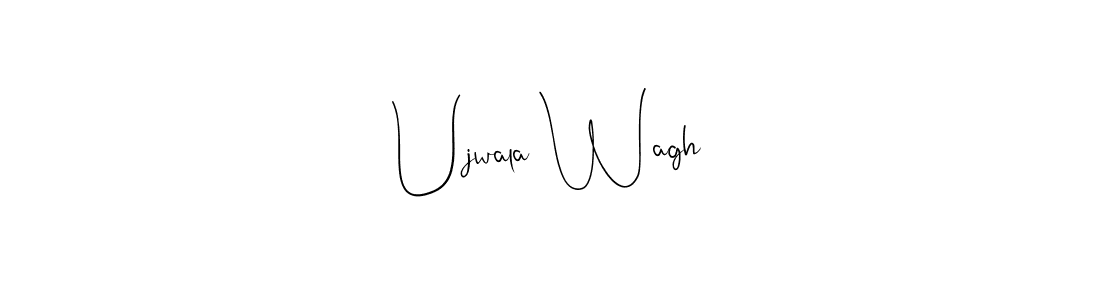 Ujwala Wagh